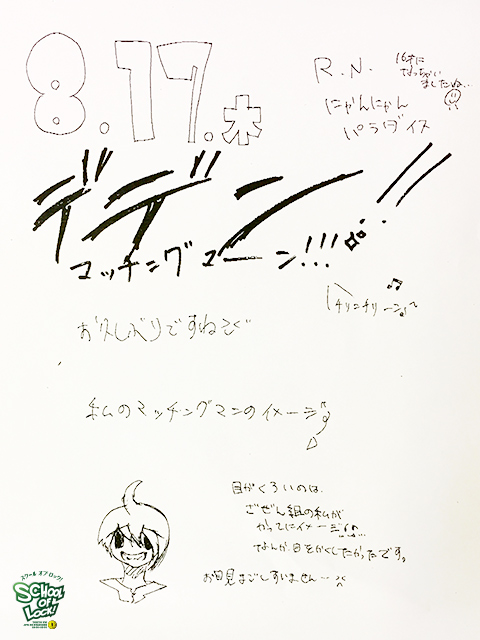 8.17.水
R.N.
16才に
なっちゃい
ましたね..
にゃんにゃん
パラダイス
デデン!!
マッチングマーン!!!
チリンチリーン♪
お久しぶりですね
私のマッチングマンのイメージ
目がくろいのは、
ごぜん組の私が
かってにイメージ
なんか目をかくしたかったです。
お目見ごしすいませんー
スクール オブ ロック!
SCHOOL
OF
LOCK!